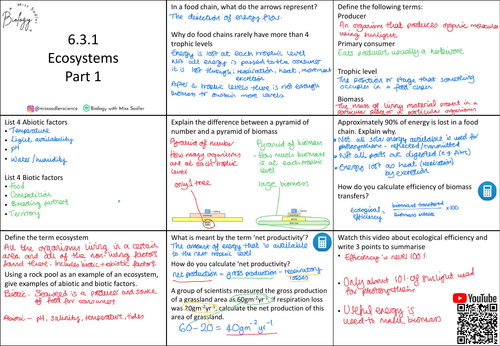 Miss Sadler
Biology
6.3.1
Ecosystems
Part 1
@missadlerscience
Biology with Miss Sadler
In a food chain, what do the arrows represent?
The direction of energy flow.
Why do food chains rarely have more than 4
trophic levels
Energy is lost at each trophic level
Not all energy is passed to the consumer
it is lost through; respiration, heat, movement
excretion
After 4 trophic levels there is not enough
biomass to sustain more levels
Define the following terms:
Producer
An organism that produces organic molecules
using sunlight
Primary consumer
Eats producers, usually a herbivore
Trophic level
The position or stage that something
occupies in a food chain
Biomass
The mass of living material present in a
particular area or in particular organisms
List 4 Abiotic factors
• Temperature
• Light availability
• pH
• Water/humidity
List 4 Biotic factors
• Food
• Competition
• Breeding partners
• Territory
Explain the difference between a pyramid of
number and a pyramid of biomass
Pyramid of number
How many organisms
are at each trophic
level
only 1 tree
Pyramid of biomass
How much biomass
is at each trophic
level
large biomass
Approximately 90% of energy is lost in a food
chain. Explain why.
• Not all solar energy available is used for
photosynthesis - reflected/transmitted
• Not all parts are digested
• Energy lost as heat (respiration)
by excretion
How do you calculate efficiency of biomass
transfers?
ecological
efficiency = biomass transferred
biomass intake x100
Define the term ecosystem
All the organisms living in a certain
area and all of the non-living factors
found there. Includes biotic + abiotic factors
Using a rock pool as an example of an ecosystem,
give examples of biotic and abiotic factors.
Biotic - Seaweed is a producer and source
of food for consumers
Abiotic - pH, salinity, temperature, tides
What is meant by the term 'net productivity'?
The amount of energy that is available
to the next trophic level
How do you calculate 'net productivity'.
net production = gross production - respiratory
losses
A group of scientists measured the gross production
of a grassland area as 60gm⁻²yr⁻¹. If respiration loss
was 20gm⁻²yr⁻¹, calculate the net production of this
area of grassland.
60-20 = 40gm⁻²yr⁻¹
Watch this video about ecological efficiency and
write 3 points to summarise
• Efficiency is never 100%
• Only about 10% of sunlight used
for photosynthesis
• Useful energy is
used to make biomass
YouTube